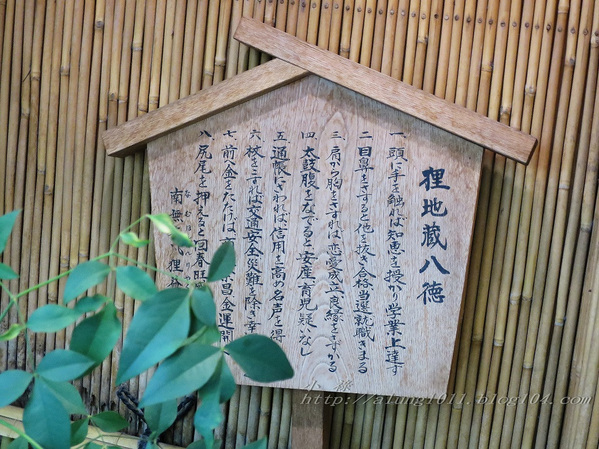 狸地蔵八徳
一、頭に手を触れば知恵を授かり学業上達す
二、目鼻をさすると他を抜き合格当選就職きまる
三、肩から胸をさすれば恋愛成立良縁をさずかる
四、太鼓腹をなでると安産育児疑いなし
五、通帳にさわれば信用を高め名声を得
六、杖をこすれば交通安全災難を除き幸
七、前八金をたたけば 昌金運開
八、尻尾を押えると回春旺
南無 狸
http://alung1011.blog104.com/